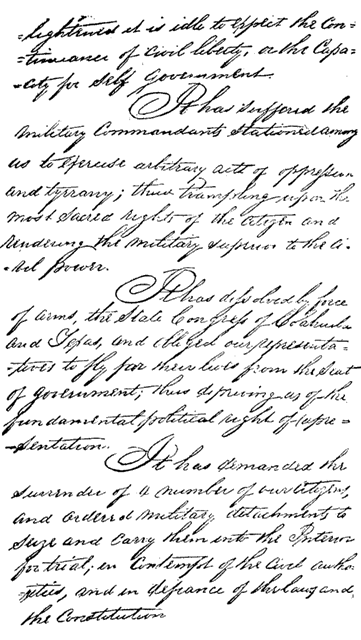 -lightened it is idle to expect the con-
-tinuance of civil liberty, or the Capa-
-city for Self Government.
It has suffered the
military Commandants stationed among
us to exercise arbitrary acts of oppression
and tyranny; thus trampling upon the
most sacred rights of the citizen and
rendering the military superior to the ci-
-vil power.
It has dissolved by force
of arms, the State Congress of Coahuila
and Texas, and obliged our representa-
-tives to fly for their lives from the Seat
of government; thus depriving us of the
fundamental political right of repre-
-sentation.
It has demanded the
surrender of a number of our citizens,
and ordered military detachments to
seize and carry them into the Interior
for trial; in contempt of the civil autho-
-rities, and in defiance of the laws and
the Constitution